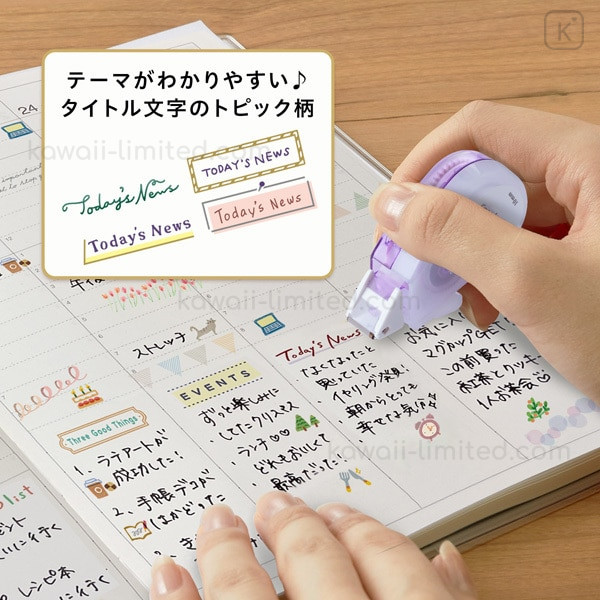 K
24
テーマがわかりやすい♪
タイトル文字のトピック柄
kawaii-limited.com
TODAY'S NEWS
Today's News
Today's News
Today's News
kawaii-limited.com
午後
ストレッチ
Today's News
EVENTS
Three Good Things
1、ラテアートが
成功した！
2、手帳デコが
はかどった
ずっと楽しみに
してたクリスマス
ランチ♡♡
どれもおいしくて
最高だった
・なくてたったと
思っていた
イヤリング発見！
・朝からとっても
幸せな気分♪
お気に入り
マグカップGET
この前買った
紅茶とクッキー
1人お茶会♡
kawaii-limited.com
list
レシピ本
kawaii-limited.com